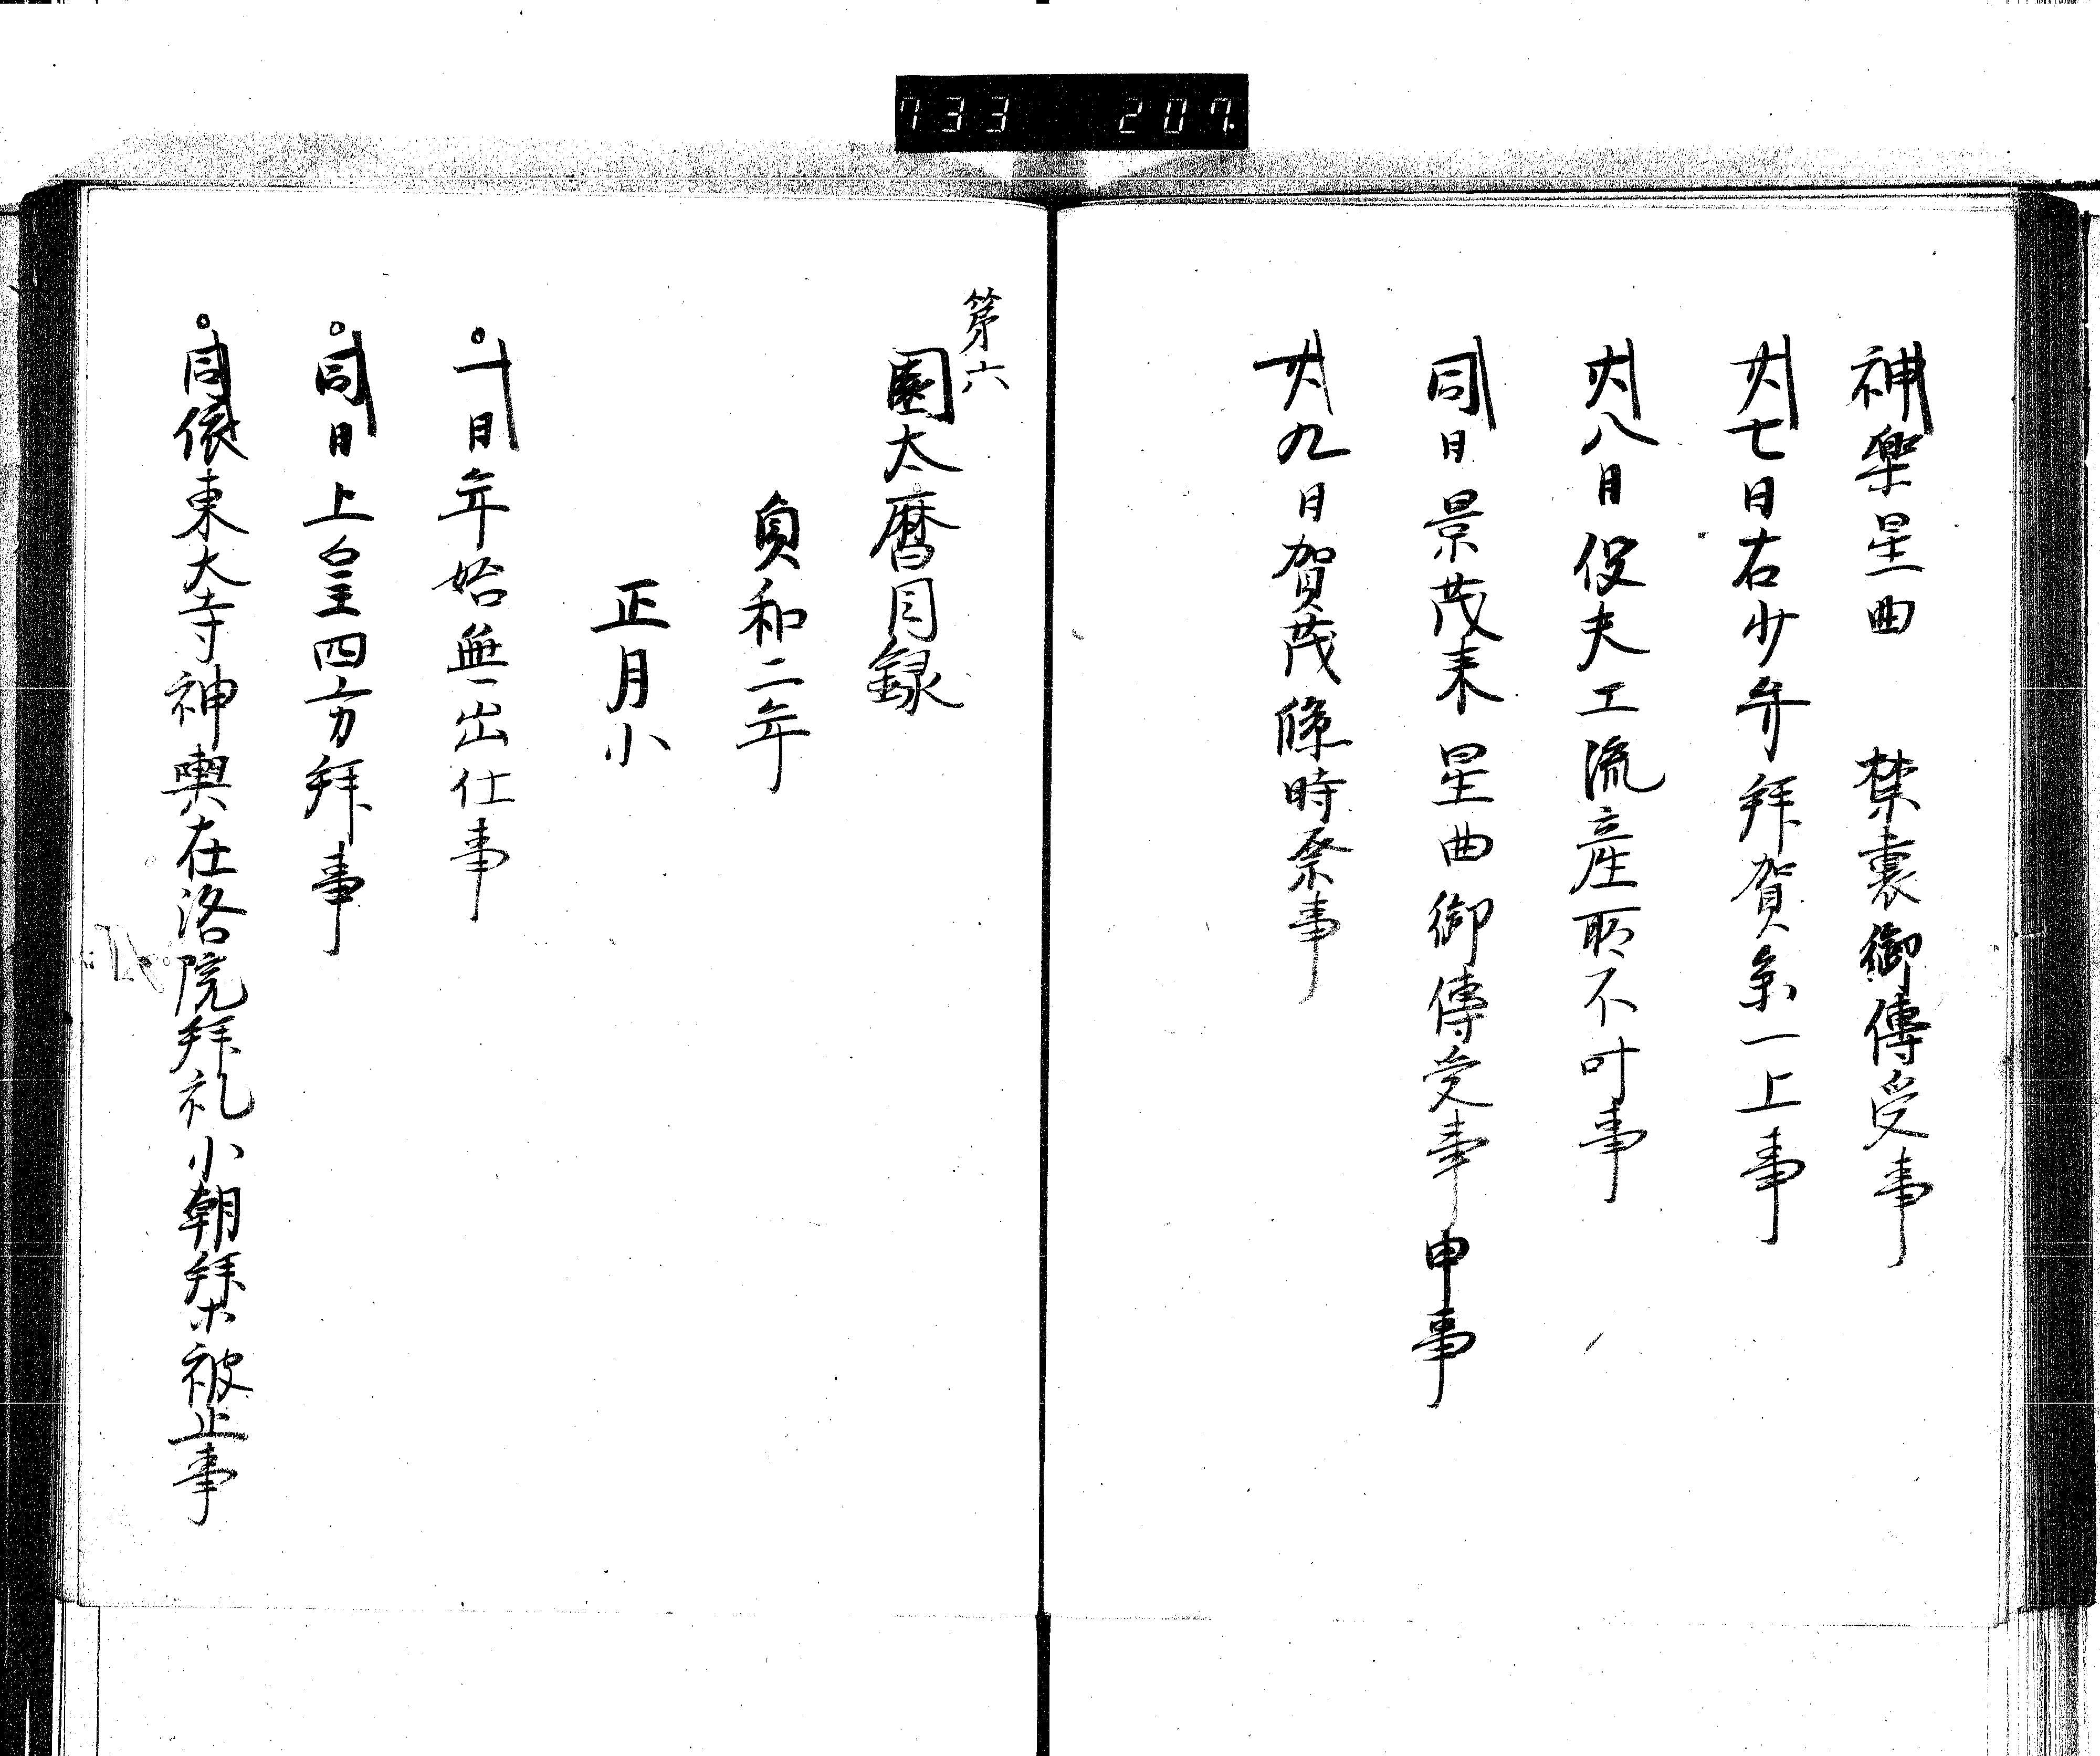 733 207
神樂星曲 禁裏御傳受事
廿七日右少弁拜賀系一上事
廿八日役夫工流產所不叶事
同日景茂来星曲御傳受事申事
廿九日賀茂條時祭事
第六
園太暦目録
貞和二年
正月小
一日年始無出仕事
同日上皇四方拜事
同依東大寺神輿在洛院拜礼小朝拜木被止事